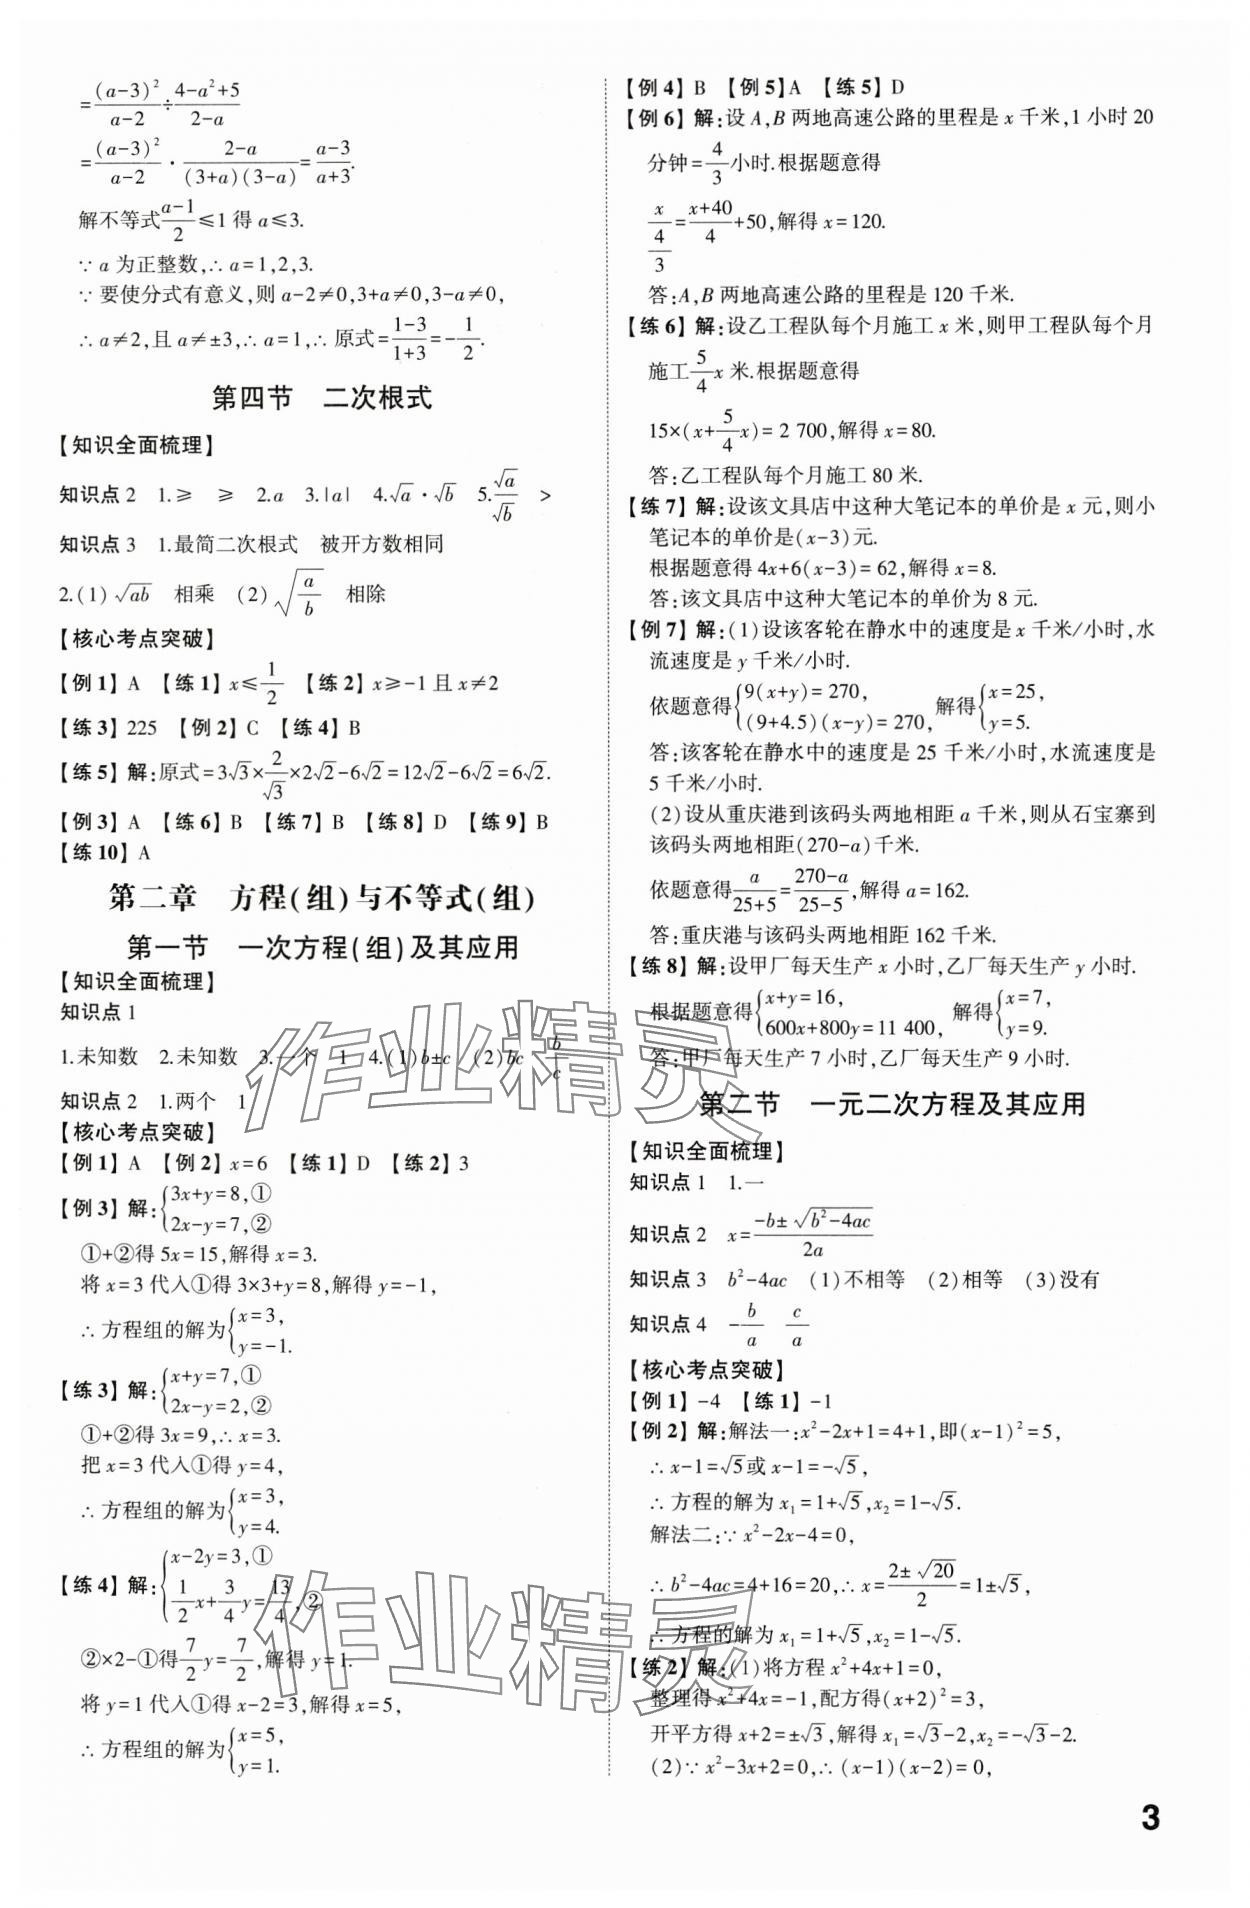 =(a-3)²/(a-2)÷(4-a²+5)/(2-a)
=(a-3)²/(a-2)·(2-a)/((3+a)(3-a))=(a-3)/(a+3).
解不等式(a-1)/2≤1得a≤3.
∵a为正整数,∴a=1,2,3.
∵要使分式有意义,则a-2≠0,3+a≠0,3-a≠0,
∴a≠2,且a≠±3,∴a=1,∴原式=(1-3)/(1+3)=-1/2.
第四节 二次根式
【知识全面梳理】
知识点2 1.≥ ≥ 2.a 3.|a| 4.√a·√b 5.√a/√b >
知识点3 1.最简二次根式 被开方数相同
2.(1)√ab 相乘 (2)√(a/b) 相除
【核心考点突破】
【例1】A 【练1】x≤1/2 【练2】x≥-1且x≠2
【练3】225 【例2】C 【练4】B
【练5】解:原式=3√3×2/√3×2√2-6√2=12√2-6√2=6√2.
【例3】A 【练6】B 【练7】B 【练8】D 【练9】B
【练10】A
第二章 方程(组)与不等式(组)
第一节 一次方程(组)及其应用
【知识全面梳理】
知识点1
1.未知数 2.未知数 3.一个 1 4.(1)b±c (2)bc b/c
知识点2 1.两个 1
【核心考点突破】
【例1】A 【例2】x=6 【练1】D 【练2】3
【例3】解:{3x+y=8,①
2x-y=7,②
①+②得5x=15,解得x=3.
将x=3代入①得3×3+y=8,解得y=-1,
∴方程组的解为{x=3,
y=-1.
【练3】解:{x+y=7,①
2x-y=2,②
①+②得3x=9,∴x=3.
把x=3代入①得y=4,
∴方程组的解为{x=3,
y=4.
【练4】解:{x-2y=3,①
1/2x+3/4y=13/4,②
②×2-①得7/2y=7/2,解得y=1.
将y=1代入①得x-2=3,解得x=5,
∴方程组的解为{x=5,
y=1.
【例4】B 【例5】A 【练5】D
【例6】解:设A,B两地高速公路的里程是x千米,1小时20
分钟=4/3小时.根据题意得
x/(4/3)=(x+40)/4+50,解得x=120.
答:A,B两地高速公路的里程是120千米.
【练6】解:设乙工程队每个月施工x米,则甲工程队每个月
施工5/4x米.根据题意得
15×(x+5/4x)=2 700,解得x=80.
答:乙工程队每个月施工80米.
【练7】解:设该文具店中这种大笔记本的单价是x元,则小
笔记本的单价是(x-3)元.
根据题意得4x+6(x-3)=62,解得x=8.
答:该文具店中这种大笔记本的单价为8元.
【例7】解:(1)设该客轮在静水中的速度是x千米/小时,水
流速度是y千米/小时.
依题意得{9(x+y)=270,
(9+4.5)(x-y)=270, 解得{x=25,
y=5.
答:该客轮在静水中的速度是25千米/小时,水流速度是
5千米/小时.
(2)设从重庆港到该码头两地相距a千米,则从石宝寨到
该码头两地相距(270-a)千米.
依题意得a/(25+5)=(270-a)/(25-5),解得a=162.
答:重庆港与该码头两地相距162千米.
【练8】解:设甲厂每天生产x小时,乙厂每天生产y小时.
根据题意得{x+y=16,
600x+800y=11 400, 解得{x=7,
y=9.
答:甲厂每天生产7小时,乙厂每天生产9小时.
第二节 一元二次方程及其应用
【知识全面梳理】
知识点1 1.一
知识点2 x=(-b±√(b²-4ac))/2a
知识点3 b²-4ac (1)不相等 (2)相等 (3)没有
知识点4 -b/a c/a
【核心考点突破】
【例1】-4 【练1】-1
【例2】解:解法一:x²-2x+1=4+1,即(x-1)²=5,
∴x-1=√5或x-1=-√5,
∴方程的解为x₁=1+√5,x₂=1-√5.
解法二:∵x²-2x-4=0,
∴b²-4ac=4+16=20,∴x=(2±√20)/2=1±√5,
∴方程的解为x₁=1+√5,x₂=1-√5.
【练2】解:(1)将方程x²+4x+1=0,
整理得x²+4x=-1,配方得(x+2)²=3,
开平方得x+2=±√3,解得x₁=√3-2,x₂=-√3-2.
(2)∵x²-3x+2=0,∴(x-1)(x-2)=0,
3
作业精灵
作业精灵